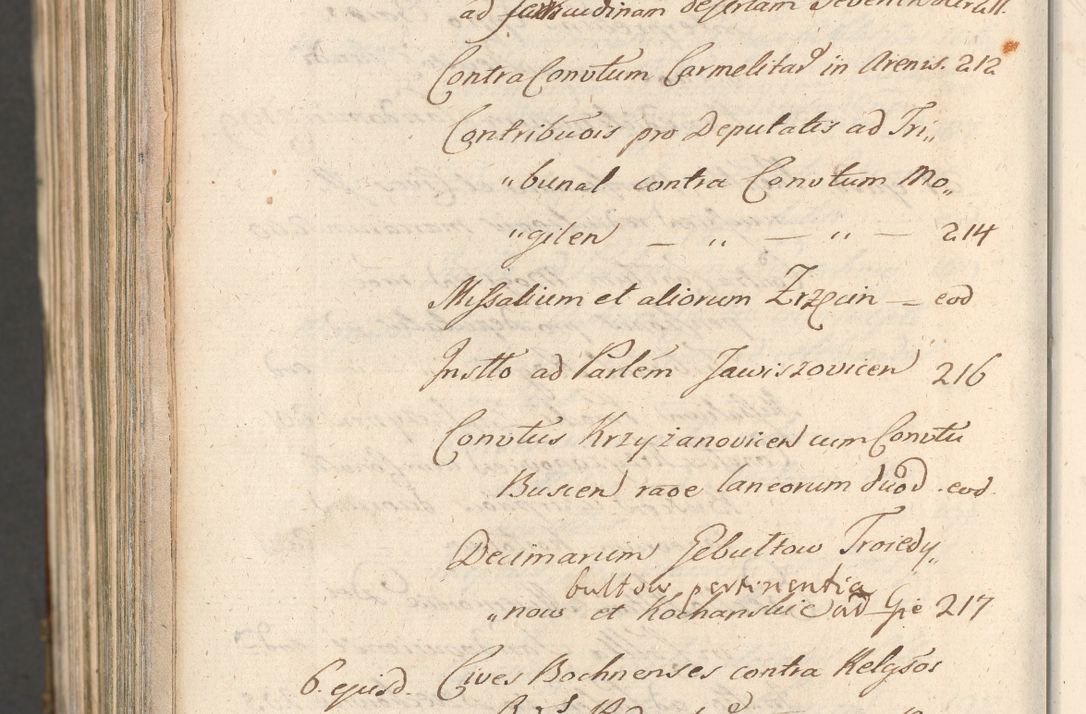 ad desertam
Contra Convtum Carmelitaꝝ in Arenis. 212
Contribuois pro Deputatis ad Tri„
„bunal contra Convtum Mo„
„gilen — „ — „ — 214
Missalium et aliorum Zrzęcin — eod
Instto ad Parlem Jawiszovicen 216
Convtus Krzyżanovicen cum Convtu
Buscen raoe laneorum duod. eod
Decimarum Gebultow Troiedy„
bultow pertinentia
„now et Kochanskie ad Gie 217
6. ejusd. Cives Bochnenses contra Relgsos